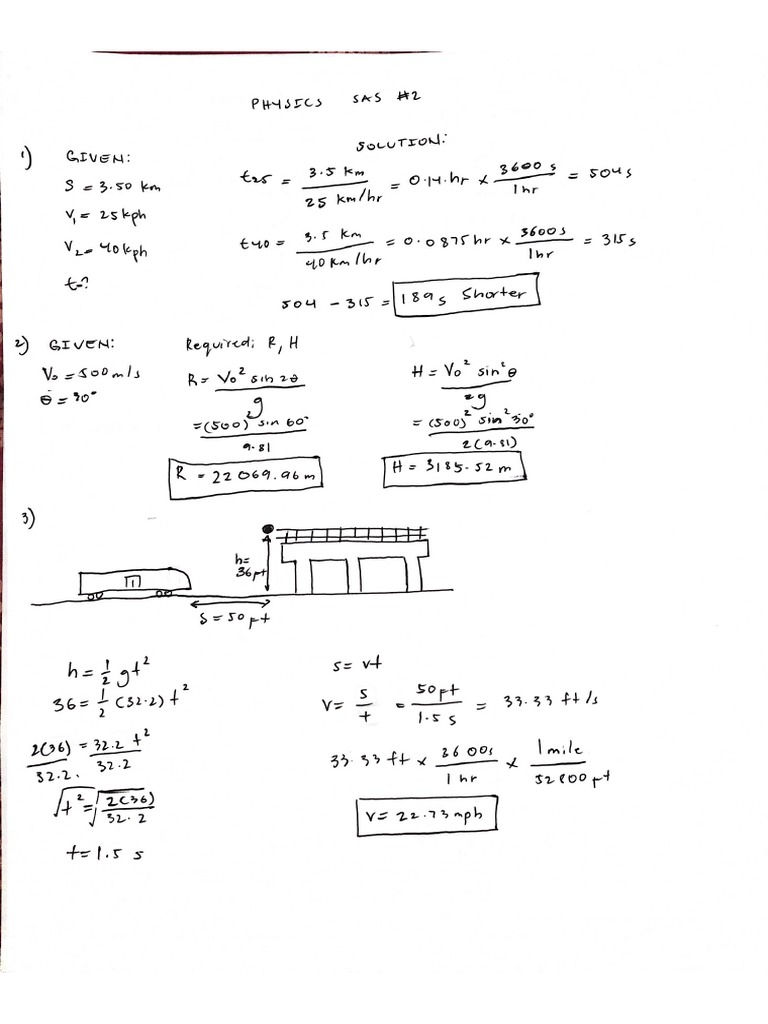 PHYSICS SAS #2
1) GIVEN:
S = 3.50 km
V₁ = 25kph
V₂ = 40kph
t=?
SOLUTION:
t25 = 3.5 km / 25 km/hr = 0.14 hr × 3600 s / 1hr = 504s
t40 = 3.5 km / 40 km/hr = 0.0875hr × 3600s / 1hr = 315s
504 - 315 = 189s Shorter
2) GIVEN:
V₀ = 500m/s
θ = 30°
Required: R, H
R = V₀² sin 2θ / g
= (500)² sin 60° / 9.81
R = 22069.96m
H = V₀² sin²θ / 2g
= (500)² sin² 30° / 2(9.81)
H = 3185.52 m
3)
h=
36ft
S = 50ft
h = 1/2 gt²
36 = 1/2 (32.2) t²
2(36) / 32.2. = 32.2 t² / 32.2
√t² = √2(36) / 32.2
t = 1.5 s
s = vt
V = s / t = 50ft / 1.5 s = 33.33 ft/s
33.33 ft × 3600s / 1 hr × 1 mile / 52800ft
V = 22.73mph